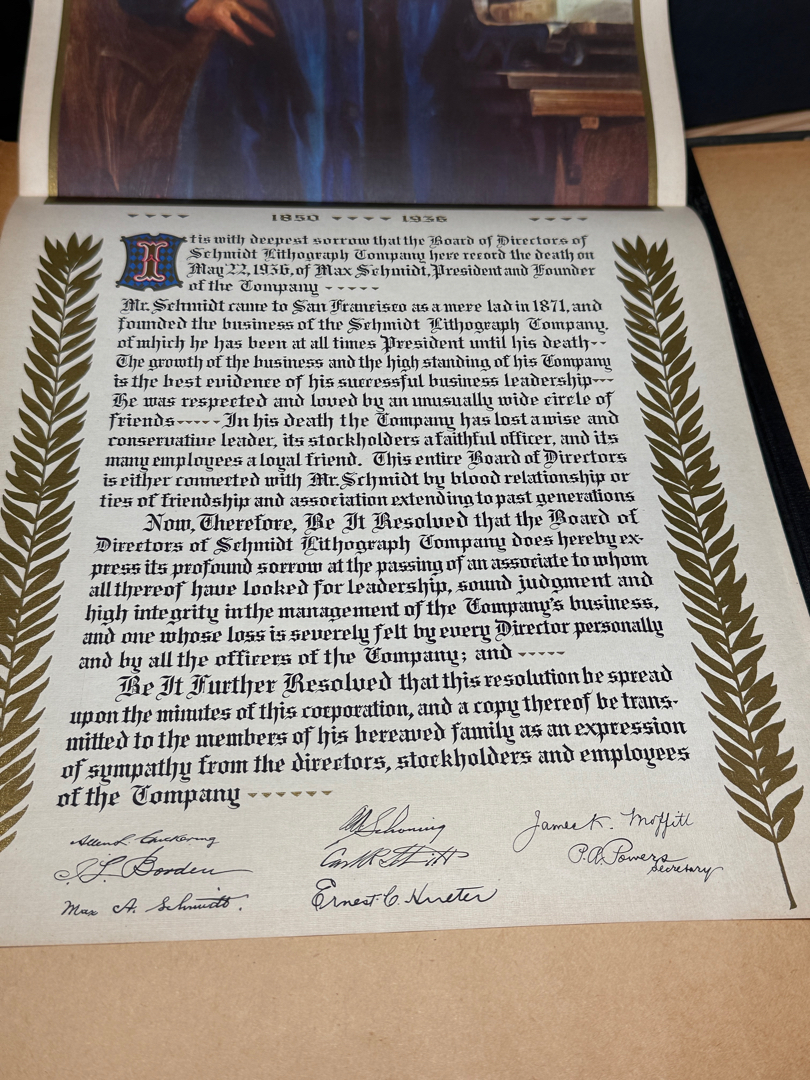 1850 1936
It is with deepest sorrow that the Board of Directors of
Schmidt Lithograph Company here record the death on
May 22, 1936, of Max Schmidt, President and Founder
of the Company -----
Mr. Schmidt came to San Francisco as a mere lad in 1871, and
founded the business of the Schmidt Lithograph Company,
of which he has been at all times President until his death--
The growth of the business and the high standing of his Company
is the best evidence of his successful business leadership---
He was respected and loved by an unusually wide circle of
friends-----In his death the Company has lost a wise and
conservative leader, its stockholders a faithful officer, and its
many employees a loyal friend. This entire Board of Directors
is either connected with Mr. Schmidt by blood relationship or
ties of friendship and association extending to past generations
Now, Therefore, Be It Resolved that the Board of
Directors of Schmidt Lithograph Company does hereby ex-
press its profound sorrow at the passing of an associate to whom
all thereof have looked for leadership, sound judgment and
high integrity in the management of the Company's business,
and one whose loss is severely felt by every Director personally
and by all the officers of the Company; and -----
Be It Further Resolved that this resolution be spread
upon the minutes of this corporation, and a copy thereof be trans-
mitted to the members of his bereaved family as an expression
of sympathy from the directors, stockholders and employees
of the Company ------
James K. Moffitt
Borden
P.A. Powers
Secretary
Max A. Schmidt.
Ernest C. Hueter